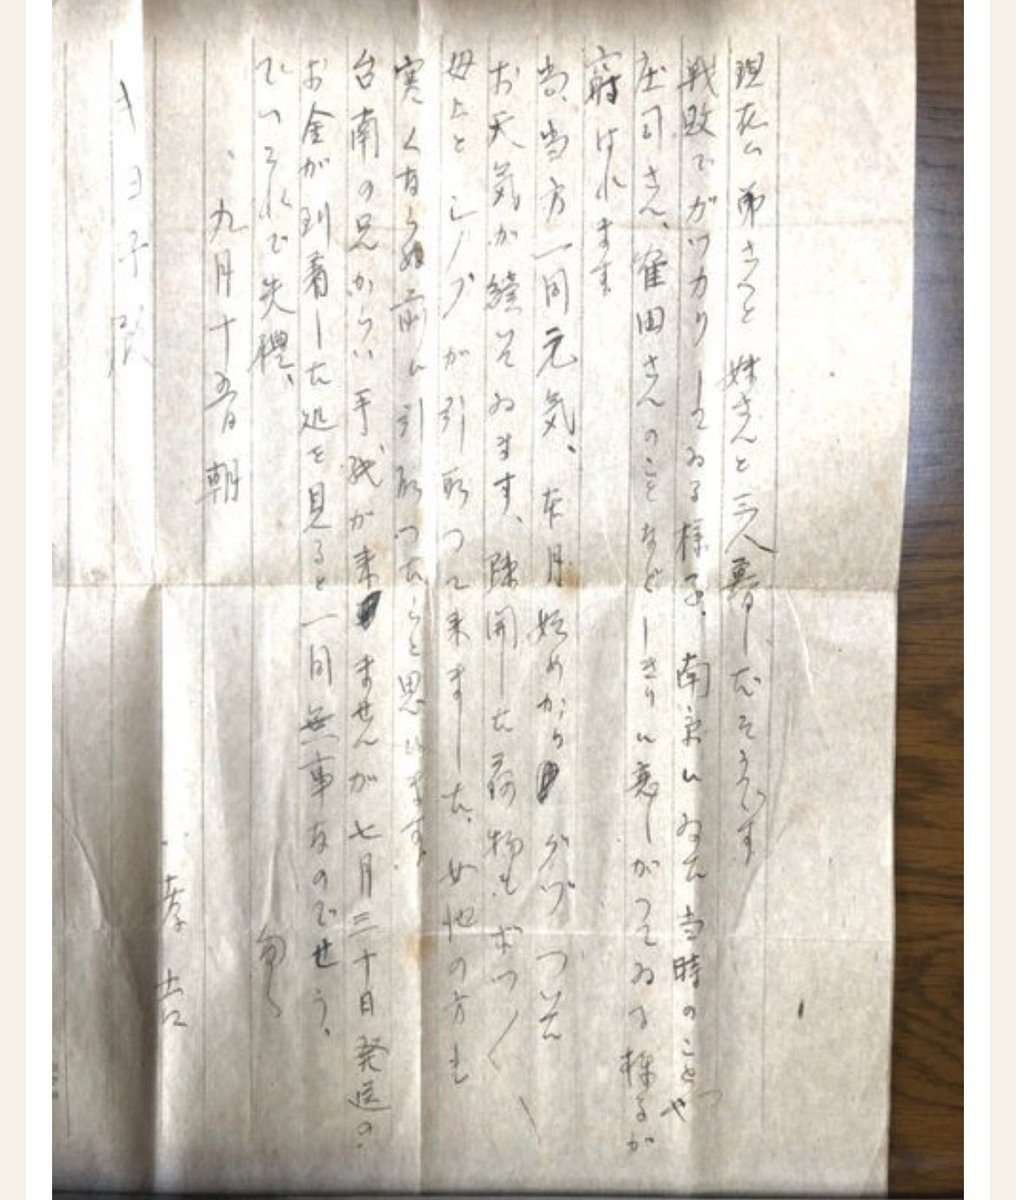 現在は弟さんと妹さんと三人暮しだそうです
戦敗でガツカリしてゐる様子、南京にゐた当時のことや
庄司さん、窪田さんのことなどしきりに恋しがつてゐる様子が
窺はれます
当方一同元気、本月始めからグヅついた
お天気が続いてゐます、疎開した荷物もボツ〳〵
母上とシノブが引取つて来ました、女池の方も
寒くならぬ前に引取つたらと思ひます、
台南の兄からは手紙が来ませんが七月三十日発送の
お金が到着した処を見ると一同無事なのでせう、
ではこれで失禮、
九月十五日朝
孝吉
キヨ子殿